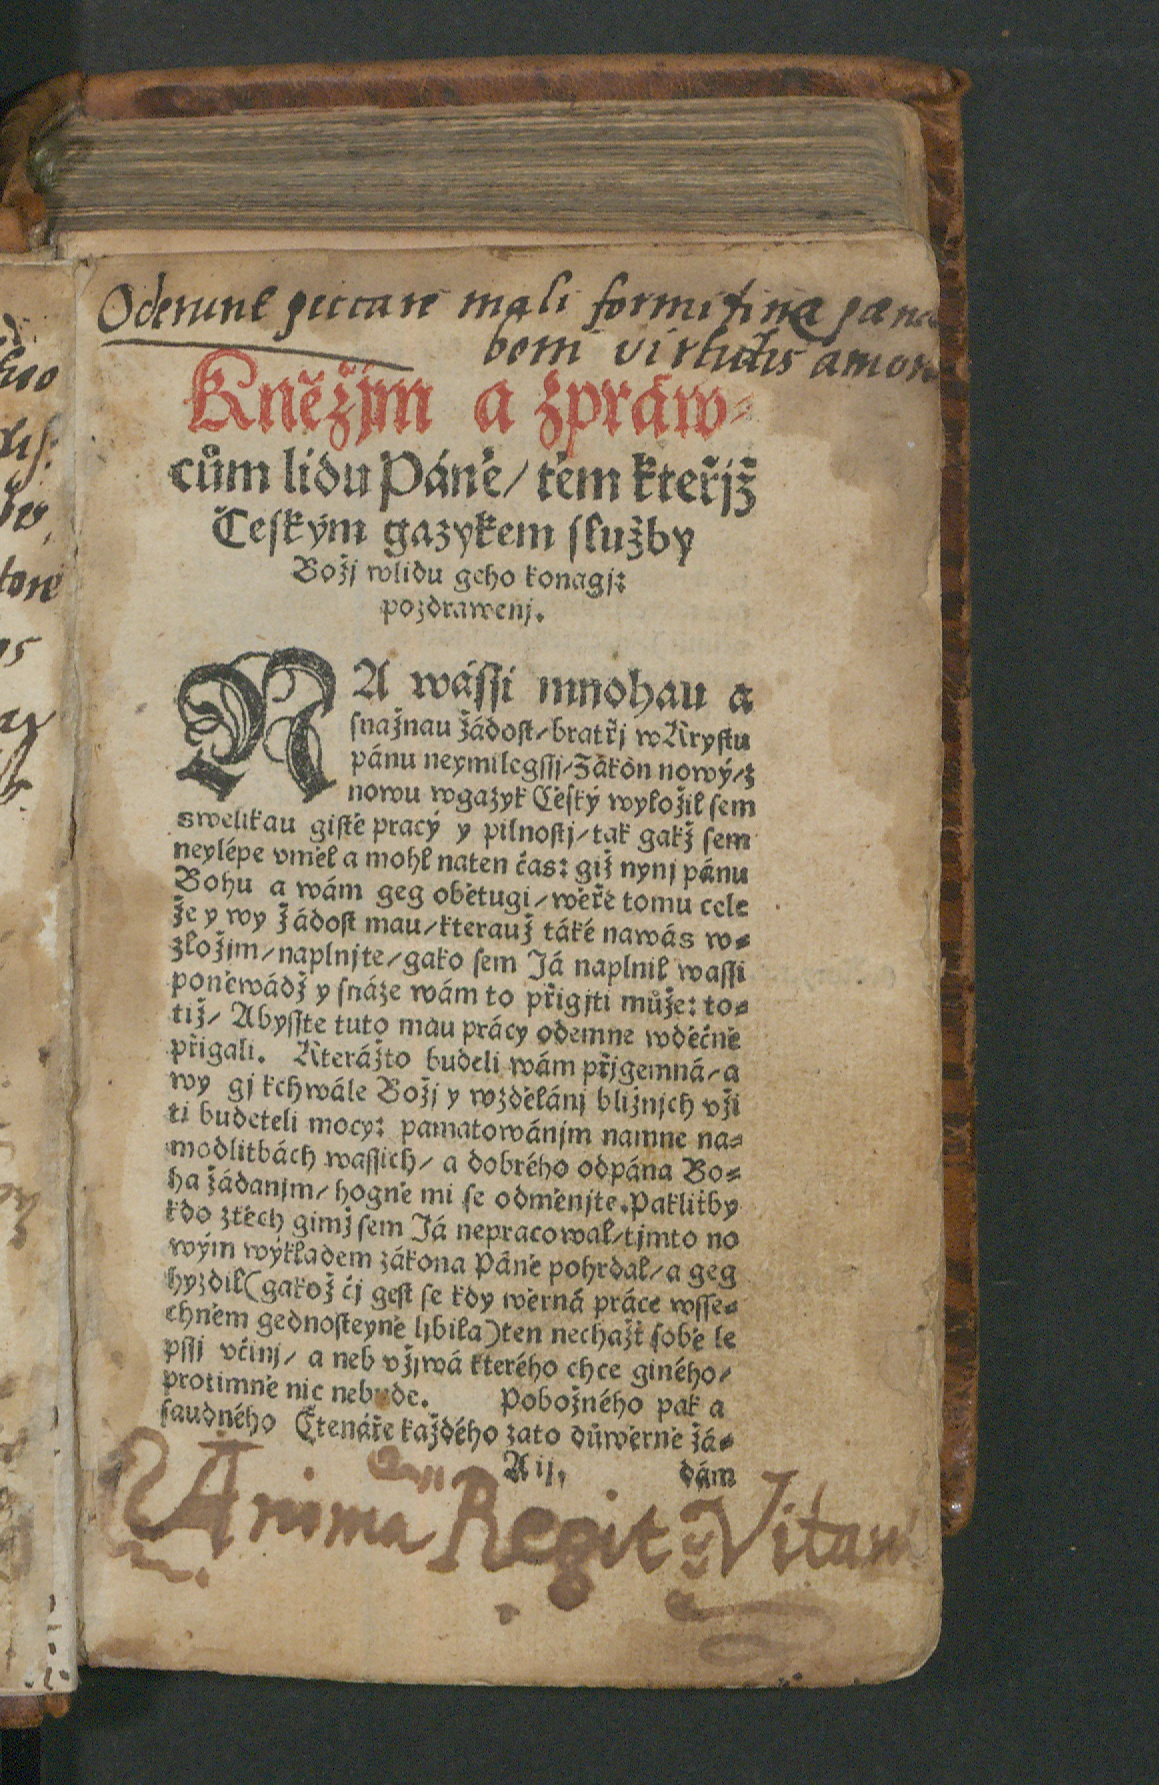 Oderunt peccare mali formidine pœnæ
boni virtutis amore
Kněžjm a zpráw⸗
cům lidu Páně/ těm kteřjž
Českým gazykem služby
Božj wlidu geho konagj:
pozdrawenj.
NA wássi mnohau a
snažnau žádost/ bratřj w Krystu
pánu neymilegssj/ Zákon nowý/ z
nowu wgazyk Český wyložil sem
swelikau gistě pracý y pilnostj/ tak gakž sem
neylépe vměl a mohl naten čas: giž nynj pánu
Bohu a wám geg obětugi/ wěře tomu cele
že y wy žádost mau/ kterauž také nawás w⸗
zložjm/ naplnjte/ gako sem Já naplnil wassi
poněwádž y snáze wám to přigjti může: to⸗
tiž/ Abysste tuto mau prácy odemne wděčně
přigali. Kterážto budeli wám přjgemná/ a
wy gj kchwále Božj y wzdělánj bližnjch vži
ti budeteli mocy: pamatowánjm namne na⸗
modlitbách wassich/ a dobrého odpána Bo⸗
ha žádanjm/ hogně mi se odměnjte. Paklitby
kdo ztěch gimž sem Já nepracowal/ tjmto no
wým wýkladem zákona Páně pohrdal/ a geg
hyzdil (gakož čj gest se kdy wěrná práce wsse⸗
chněm gednosteyně ljbila) ten nechažť sobě le
pssj včinj/ a neb vžjwá kterého chce giného/
protimně nic nebude. Pobožného pak a
saudného Čtenáře každého zato důwěrně žá⸗
A ij. dám
Anima Regit Vitam